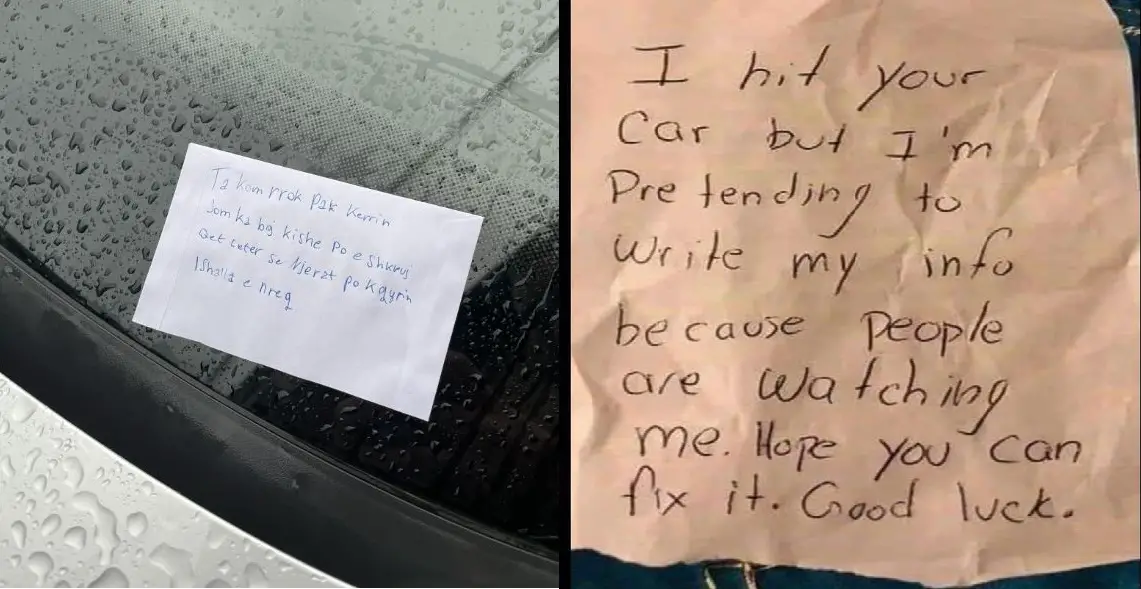 Ta kom rrok pak kerrin
Jom ka boj kishe po e shkruj
Qet leter se njerzt po kqyrin
Ishalla e nreq
I hit your
Car but I'm
Pretending to
Write my info
because people
are watching
me. Hope you can
fix it. Good luck.